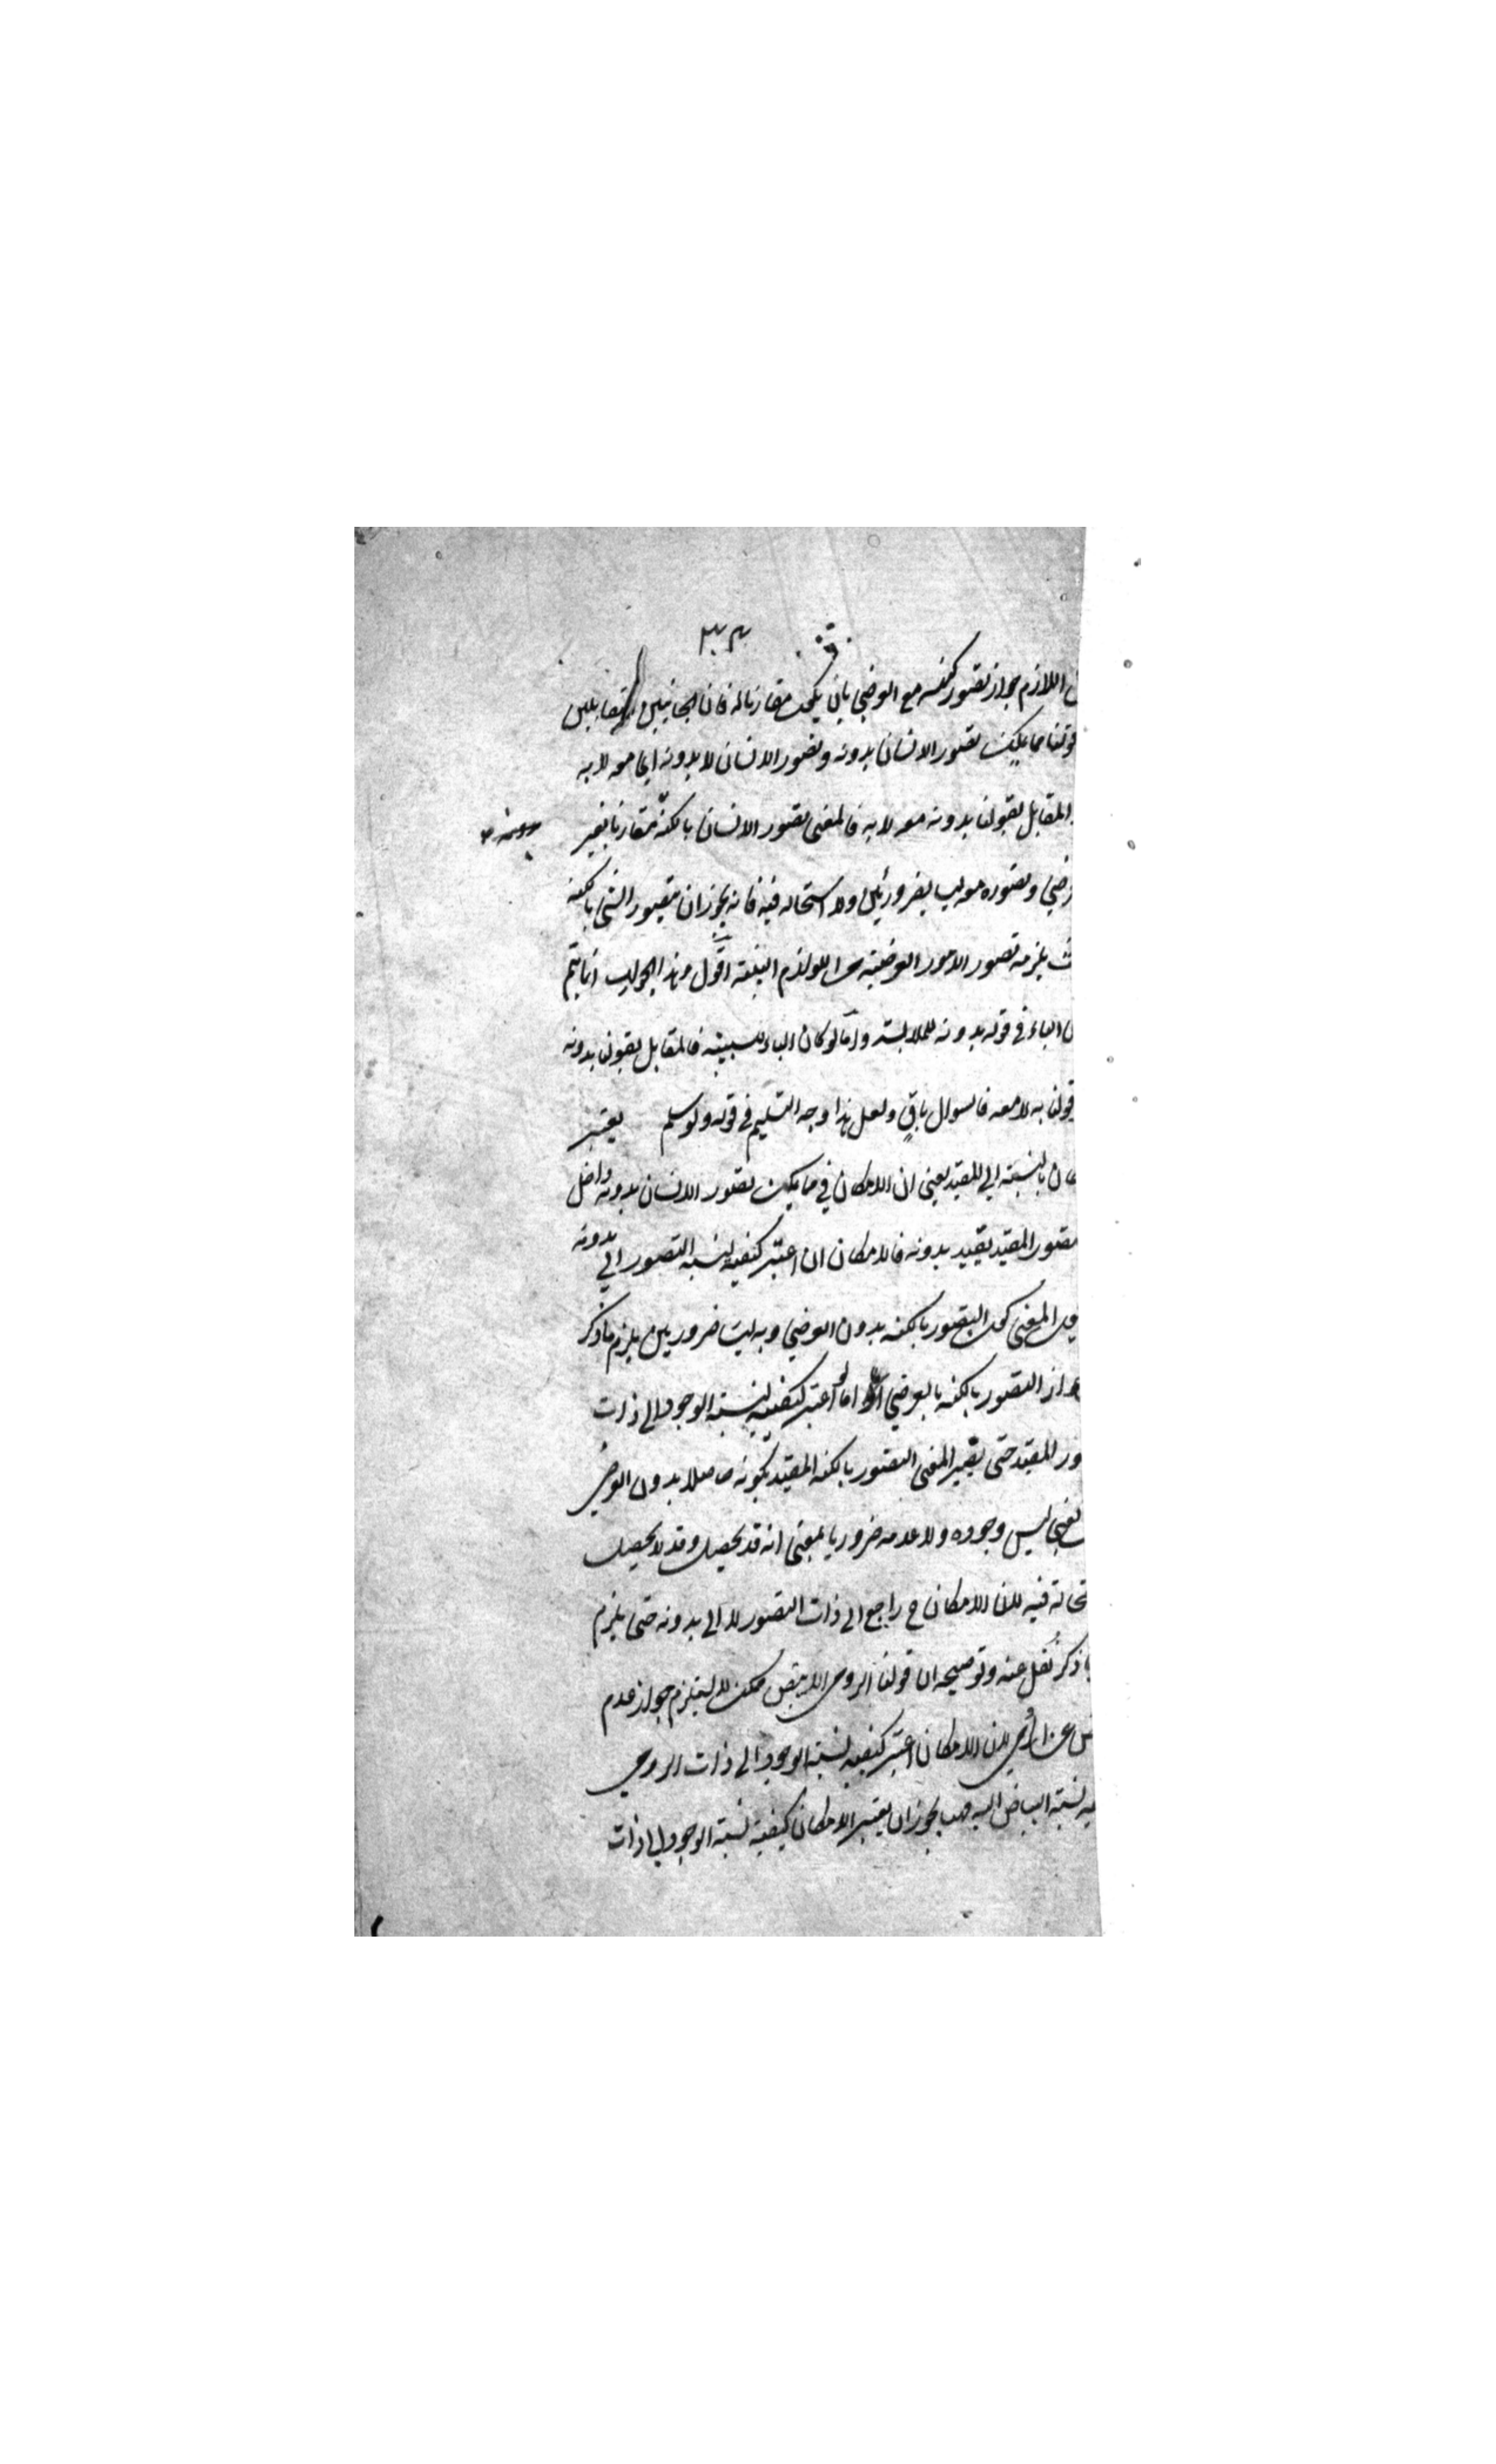 اللازم جواز تصور كنهه مع العرضي بان يكون مقارنا له فان الجانبين المتقابلين
قولنا مما يمكن تصور الانسان بدونه وتصور الانسان لا بدونه اي معه لا به
المقابل لقولنا بدونه معه لا به فالمعنى تصور الانسان بالكنه مقارنا بغير
وتصوره معه ليسا بضروريين ولا استحالة فيه فانه يجوز ان يتصور الشئ بالكنه
يلزمه تصور الامور العرضية اللوازم البينة اقول وهذا الجواب انما يتم
الباء في قوله بدونه للملابسة واما لو كان الباء للسببية فالمقابل لقولنا بدونه
قولنا به لا معه فالسوال باق ولعل هذا وجه التسليم في قوله ولو سلم يعتبر
بالنسبة الى المقيد يعني ان الامكان في ما يمكن تصور الانسان بدونه داخل
المقيد بقيد بدونه فالامكان ان اعتبر كيفية لنسبة التصور الى بدونه
المعنى كون التصور بالكنه بدون العرضي وبه ليسا ضروريين يلزم ما ذكر
التصور بالكنه بالعرضي اما لو اعتبر كيفية لنسبة الوجود الى ذات
المقيد حتى يصير المعنى التصور بالكنه المقيد بكونه حاصلا بدون العرضي
ليس وجوده ولا عدمه ضروريا بمعنى انه قد يحصل وقد لا يحصل
فيه لان الامكان ح راجع الى ذات التصور لا الى بدونه حتى يلزم
ذكر نقل عنه وتوضيحه ان قولنا الرومي الابيض ممكن لا يستلزم جواز عدم
عن الرومي لان الامكان اعتبر كيفية نسبة الوجود الى ذات الرومي
نسبة البياض اليه يجوز ان يعتبر الامكان كيفية نسبة الوجود الى ذات